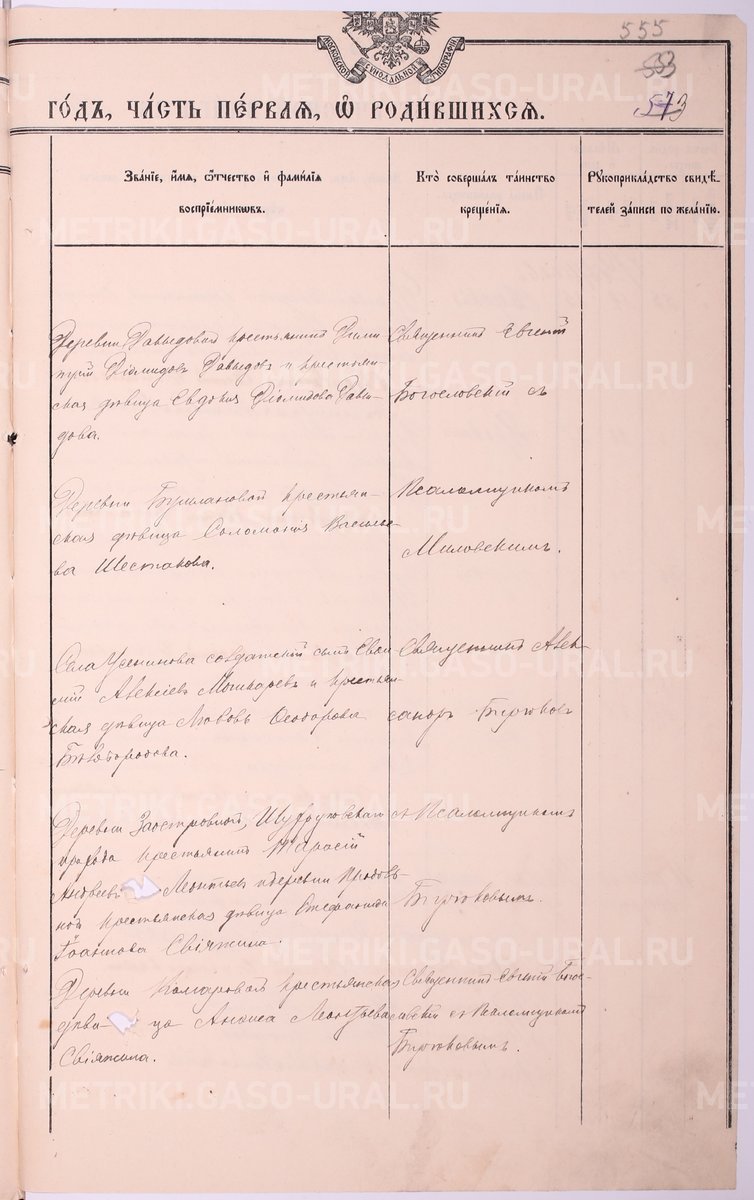 555
553
573
МОСКОВСКОЙ СѴНОДАЛЬНОЙ ТИПОГРАФІИ
ГО́ДЪ, ЧА́СТЬ ПЕ́РВАЯ, Ѽ РОДИ́ВШИХСЯ.
Зва́нїе, и́мя, ѻ҆́тчество и҆ фами́лїя
воспрїе́мниковъ.
Кто̀ соверша́лъ та́инство
креще́нїя.
Рꙋкоприкла́дство свидѣ́-
телей за́писи по жела́нїю.
Деревни Давыдовой крестьянинъ Дими
трій Діомидовъ Давыдовъ и крестьян-
ская дѣвица Евдокія Діомидова Давы-
дова.
Священникъ Евгеній
Богословскій съ
Деревни Бурлаковой крестьян-
ская дѣвица Соломонія Василье-
ва Шестакова.
Псаломщикомъ
Миловскимъ.
Села солдатскій сынъ
Алексѣевъ и крестьян-
ская дѣвица Любовь Ѳеодорова
Бѣлобородова.
Священникъ Алек-
сандръ Бирюковъ
Деревни Заостровной,
прихода крестьянинъ Тарасій
Леонтьевъ и деревни
ной крестьянская дѣвица Стефанида
Іоаннова Свіяжина.
съ Псаломщикомъ
Бирюковымъ.
Деревни Комаровой крестьянская
дѣви ца Анѳиса Леонтьева
Свіяжина.
Священникъ Евгеній Бого-
словскій съ Псаломщикомъ
Бирюковымъ.
METRIKI.GASO-URAL.RU